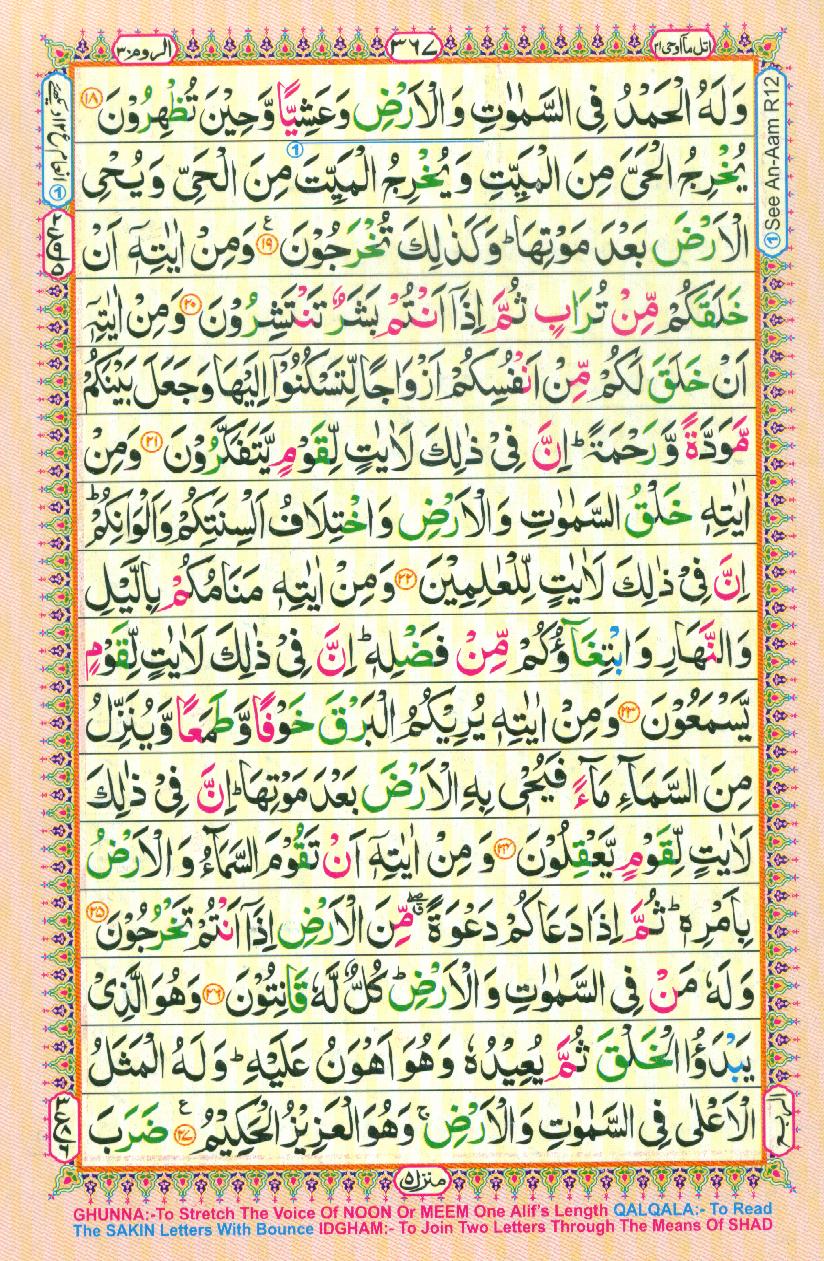 اتل مآ اوحی ۲۱
۳۶۷
الروم ۳۰
وَلَهُ الْحَمْدُ فِی السَّمٰوٰتِ وَالْاَرْضِ وَعَشِیًّا وَّحِیْنَ تُظْهِرُوْنَ ۱۸
یُخْرِجُ الْحَیَّ مِنَ الْمَیِّتِ وَیُخْرِجُ الْمَیِّتَ مِنَ الْحَیِّ وَیُحْیِ
الْاَرْضَ بَعْدَ مَوْتِهَا ؕ وَكَذٰلِكَ تُخْرَجُوْنَ ۱۹ ع وَمِنْ اٰیٰتِهٖۤ اَنْ
خَلَقَكُمْ مِّنْ تُرَابٍ ثُمَّ اِذَاۤ اَنْتُمْ بَشَرٌ تَنْتَشِرُوْنَ ۲۰ وَمِنْ اٰیٰتِهٖۤ
اَنْ خَلَقَ لَكُمْ مِّنْ اَنْفُسِكُمْ اَزْوَاجًا لِّتَسْكُنُوْۤا اِلَیْهَا وَجَعَلَ بَیْنَكُمْ
مَّوَدَّةً وَّرَحْمَةً ؕ اِنَّ فِیْ ذٰلِكَ لَاٰیٰتٍ لِّقَوْمٍ یَّتَفَكَّرُوْنَ ۲۱ وَمِنْ
اٰیٰتِهٖ خَلْقُ السَّمٰوٰتِ وَالْاَرْضِ وَاخْتِلَافُ اَلْسِنَتِكُمْ وَاَلْوَانِكُمْ ؕ
اِنَّ فِیْ ذٰلِكَ لَاٰیٰتٍ لِّلْعٰلِمِیْنَ ۲۲ وَمِنْ اٰیٰتِهٖ مَنَامُكُمْ بِالَّیْلِ
وَالنَّهَارِ وَابْتِغَآؤُكُمْ مِّنْ فَضْلِهٖ ؕ اِنَّ فِیْ ذٰلِكَ لَاٰیٰتٍ لِّقَوْمٍ
یَّسْمَعُوْنَ ۲۳ وَمِنْ اٰیٰتِهٖ یُرِیْكُمُ الْبَرْقَ خَوْفًا وَّطَمَعًا وَّیُنَزِّلُ
مِنَ السَّمَآءِ مَآءً فَیُحْیٖ بِهِ الْاَرْضَ بَعْدَ مَوْتِهَا ؕ اِنَّ فِیْ ذٰلِكَ
لَاٰیٰتٍ لِّقَوْمٍ یَّعْقِلُوْنَ ۲۴ وَمِنْ اٰیٰتِهٖۤ اَنْ تَقُوْمَ السَّمَآءُ وَالْاَرْضُ
بِاَمْرِهٖ ؕ ثُمَّ اِذَا دَعَاكُمْ دَعْوَةً ۖۗ مِّنَ الْاَرْضِ اِذَاۤ اَنْتُمْ تَخْرُجُوْنَ ۲۵
وَلَهٗ مَنْ فِی السَّمٰوٰتِ وَالْاَرْضِ ؕ كُلٌّ لَّهٗ قَانِتُوْنَ ۲۶ وَهُوَ الَّذِیْ
یَبْدَؤُا الْخَلْقَ ثُمَّ یُعِیْدُهٗ وَهُوَ اَهْوَنُ عَلَیْهِ ؕ وَلَهُ الْمَثَلُ
الْاَعْلٰی فِی السَّمٰوٰتِ وَالْاَرْضِ ۚ وَهُوَ الْعَزِیْزُ الْحَكِیْمُ ۲۷ ع ضَرَبَ
① See An-Aam R12
منزل ۵
GHUNNA:-To Stretch The Voice Of NOON Or MEEM One Alif's Length QALQALA:- To Read
The SAKIN Letters With Bounce IDGHAM:- To Join Two Letters Through The Means Of SHAD